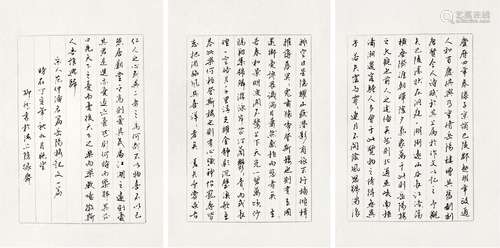 慶曆四年春滕子京謫守巴陵郡越明年政通
人和百廢具興乃重修岳陽樓增其舊制刻
唐賢今人詩賦于其上屬予作文以記之予觀
夫巴陵勝狀在洞庭一湖銜遠山吞長江浩浩湯
湯橫無際涯朝暉夕陰氣象萬千此則岳陽樓
之大觀也前人之述備矣然則北通巫峽南極
瀟湘遷客騷人多會于此覽物之情得無異
乎若夫霪雨霏霏連月不開陰風怒號濁浪
排空日星隱耀山岳潛形商旅不行檣傾楫
摧薄暮冥冥虎嘯猿啼登斯樓也則有去國
懷鄉憂讒畏譏滿目蕭然感極而悲者矣至
若春和景明波瀾不驚上下天光一碧萬頃沙
鷗翔集錦鱗游泳岸芷汀蘭郁郁青青而或長
煙一空皓月千里浮光躍金靜影沉璧漁歌互
答此樂何極登斯樓也則有心曠神怡寵辱皆
忘把酒臨風其喜洋洋者矣嗟夫予嘗求古
仁人之心或異二者之為何哉不以物喜不以己
悲居廟堂之高則憂其民處江湖之遠則憂
其君是進亦憂退亦憂然則何時而樂耶其必
曰先天下之憂而憂後天下之樂而樂歟噫微斯
人吾誰與歸
宋人范仲淹名篇岳陽樓記一篇